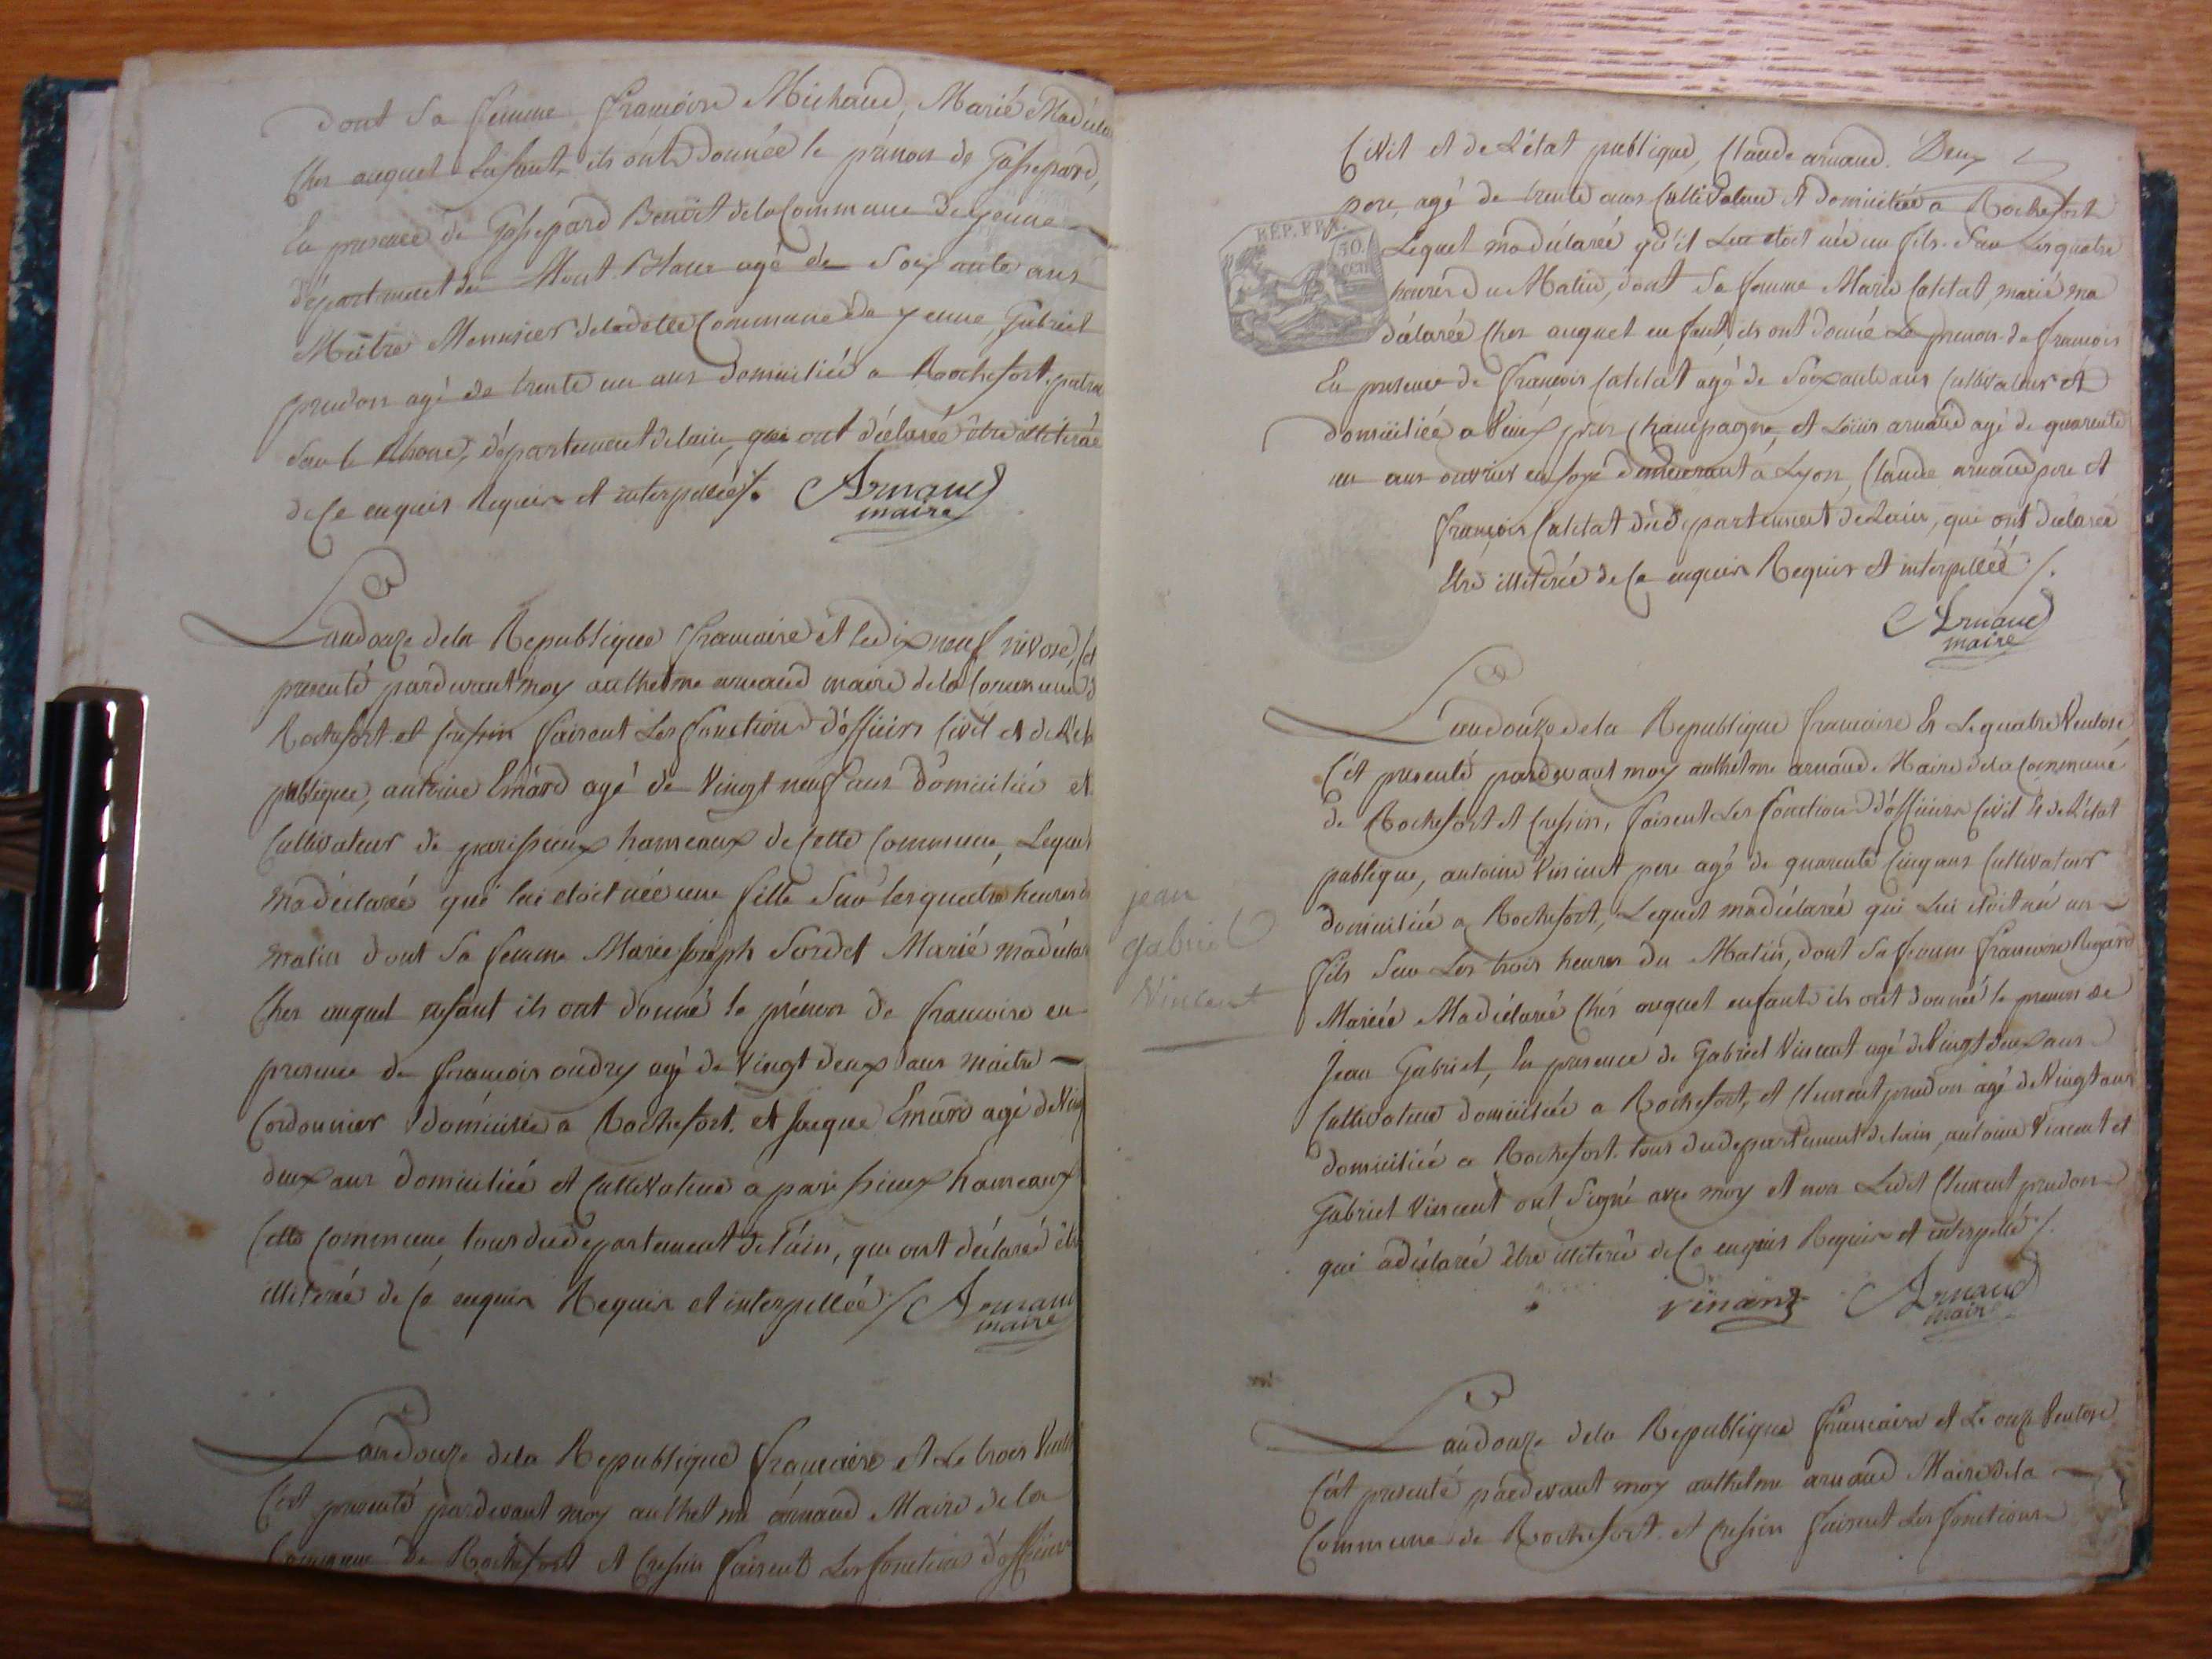 dont Sa femme françoise Michaud, Marié Madécla
Cher auquel Enfant ils ont donnée le prénon de Gassepard,
En presence de Gassepard Benoit de la Commune de yenne
département du Mont Blanc agé de Soixante ans
Maitre Menusier de la dette Commune de yenne, Gabriel
prudon agé de trente un ans domicilié a Rochefort
Sur le Rhone, département de lain, qui ont déclarée être illiterée
de Ce enquis Requis et interpellée/. Arnaud
maire
Lan douze de la Republique francaise et le dix neuf nivose, Cet
presenté pardevant moy anthelme arnaud maire de la Commune d
Rochefort et Cressin faisent Les fonctions d'officiers Civil et de L'ét
publique, antoine Emard agé de Vingt neuf ans domicilié et
Cultivateur de parissieux hameaux de Cette Commune, Lequel
ma déclaré qué lui etoit née une fille Sur les quatre heures d
matin dont Sa femme Marie Joseph Sordet Marié ma déclar
Cher auquel enfant ils ont donné le prénon de francoise en
presence de francois oudry agé de Vingt deux ans maitre
Cordonnier domicilié a Rochefort. et Jacque Emard agé de Ving
deux ans domicilié et Cultivateur a parissieux hameaux
Cette Commune, tous du departement de l'ain, que ont déclaré être
illiterée de Ce enquis Requis et interpellée / Arnaud
maire
Lan douze dela Republique francaise et Le trois Vento
C'est presenté pardevant moy anthelme arnaud Maire de la
Commune de Rochefort et Cressin faisent Les fonctions d'officiers
Civil et de L'état publique, Claude arnaud.
pere, agé de trente ans Cultivateur et domiciliée a Rochefort
RÉP. FRA.
50.
CEN
Lequel ma déclarée qu'il Lui etoit née un fils Sur Les quatre
heures du Matin, dont Sa femme Marie Catitat, marié ma
déclarée Cher auquel enfant, ils ont donné Le prenon de francois
En presence de francois Catitat agé de Soixante ans Cultivateur et
domiciliée a près Champagne, et Louis arnaud agé de quarente
un ans ouvrier en soye demeurant à Lyon, Claude arnaud pere et
francois Catitat du departement de Lain, qui ont déclarée
Etre illiterée de Ce enquis Requis et interpellée /.
Arnaud
maire
Lan douze de la Republique francaise Et Le quatre Ventose
C'ét presenté pardevant moy anthelme arnaud Maire de la Commune
de Rochefort et Cressin, faisent Les fonctions d'officiers Civil Et de L'état
publique, antoine Vincent pere agé de quarente Cinq ans Cultivateur
domicilié a Rochefort, Lequel ma déclarée qui Lui etoit né un
jean
gabriel
Vincent
fils Sur Les trois heures du Matin, dont Sa femme francoise Regard
Mariée Ma déclaré Chés auquel enfant ils ont donnée le prenon de
Jean Gabriel, En presence de Gabriel Vincent agé de Vingt deux ans
Cultivateur domiciliée a Rochefort, et Clement prudon agé de Vingt ans
domiciliée a Rochefort. tous du departement de lain, antoine Vincent et
Gabriel Vincent ont Signé avec moy et non Ledit Clement prudon
qui a déclarée être illiteré de Ce enquis Requis et interpellé /.
vinant Arnaud
maire
Lan douze dela Republique francaise et Le onze Ventose
C'ét presenté pardevant moy anthelme arnaud Maire de la
Commune de Rochefort. et Cressin faisent Les fonctions